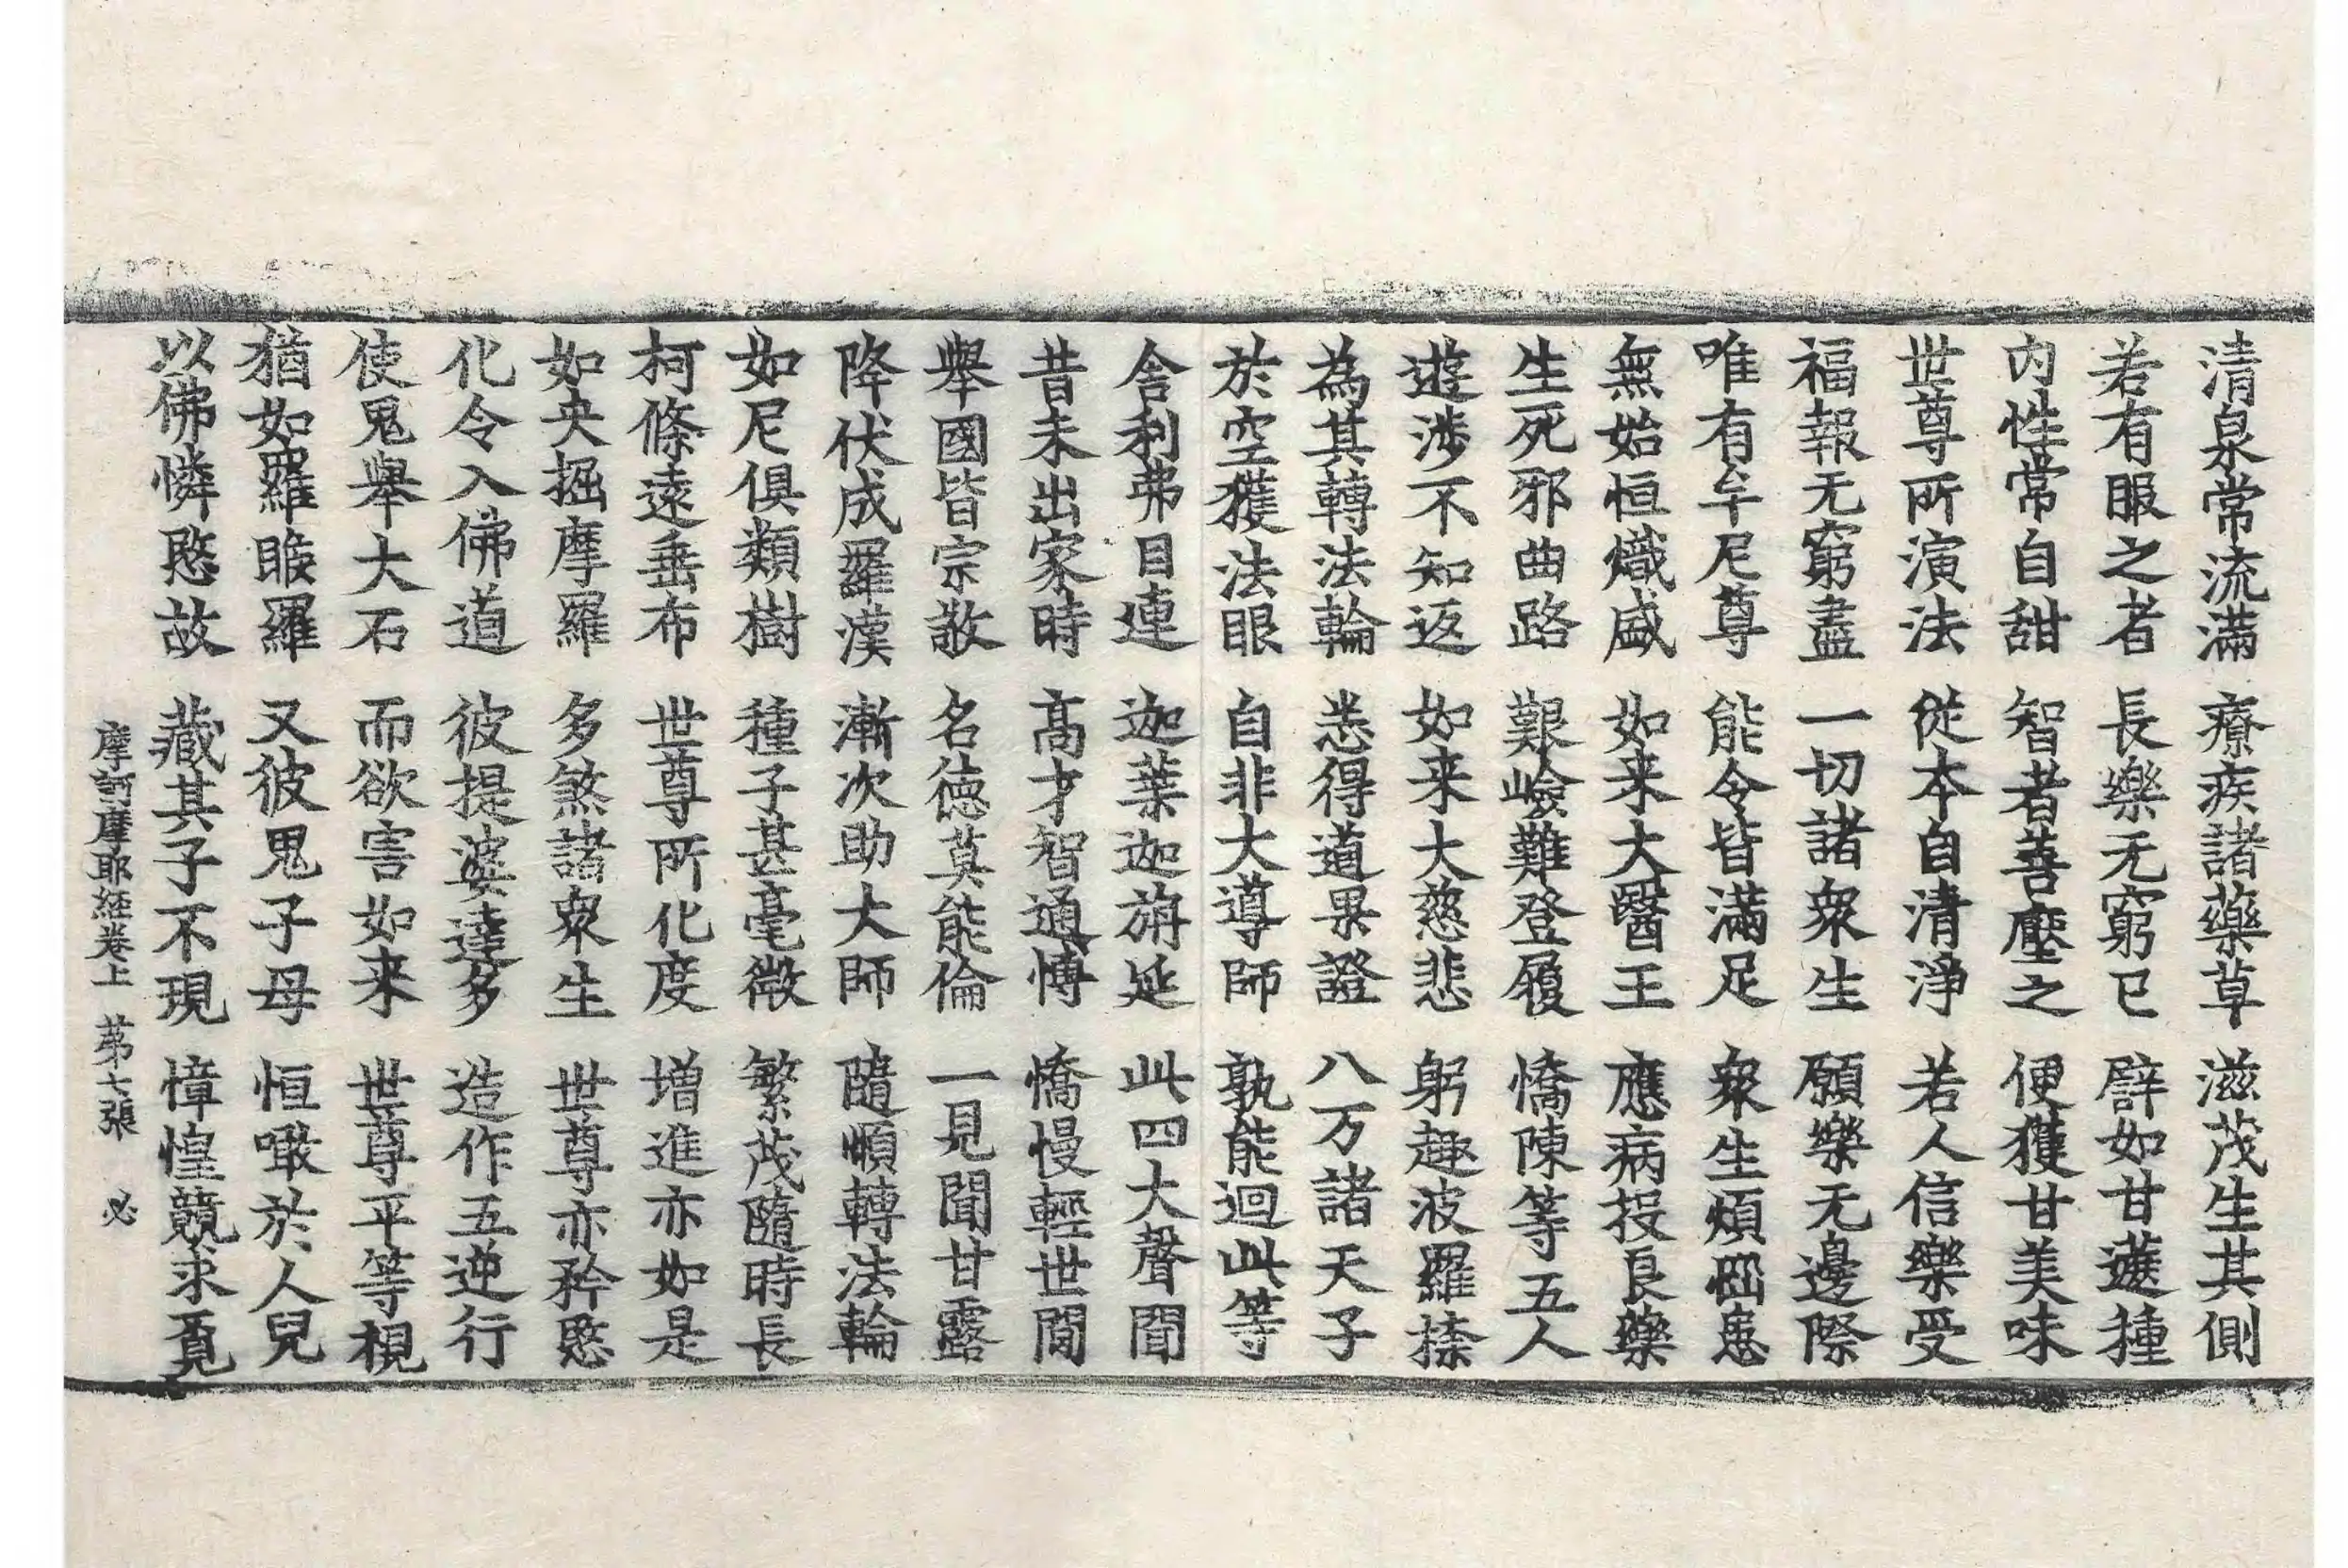 清泉常流滿　療疾諸藥草　滋茂生其側
若有服之者　長樂无窮已　譬如甘蔗種
內性常自甜　智者善壓之　便獲甘美味
世尊所演法　從本自清淨　若人信樂受
福報无窮盡　一切諸衆生　願樂无邊際
唯有牟尼尊　能令皆滿足　衆生煩惱患
無始恒熾盛　如来大醫王　應病投良藥
生死邪曲路　艱嶮難登履　憍陳等五人
遊涉不知返　如来大慈悲　躬趣波羅㮈
為其轉法輪　悉得道果證　八万諸天子
於空獲法眼　自非大導師　孰能迴此等
舍利弗目連　迦葉迦旃延　此四大聲聞
昔未出家時　髙才智通愽　憍慢輕世間
舉國皆宗敬　名德莫能倫　一見聞甘露
降伏成羅漢　漸次助大師　隨順轉法輪
如尼俱類樹　種子甚毫微　繁茂隨時長
柯條遠垂布　世尊所化度　增進亦如是
如央掘摩羅　多煞諸衆生　世尊亦矜愍
化令入佛道　彼提婆達多　造作五逆行
使鬼舉大石　而欲害如来　世尊平等視
猶如羅睺羅　又彼鬼子母　恒噉於人兒
以佛憐愍故　藏其子不現　慞惶競求覓
摩訶摩耶経卷上　苐七張　必